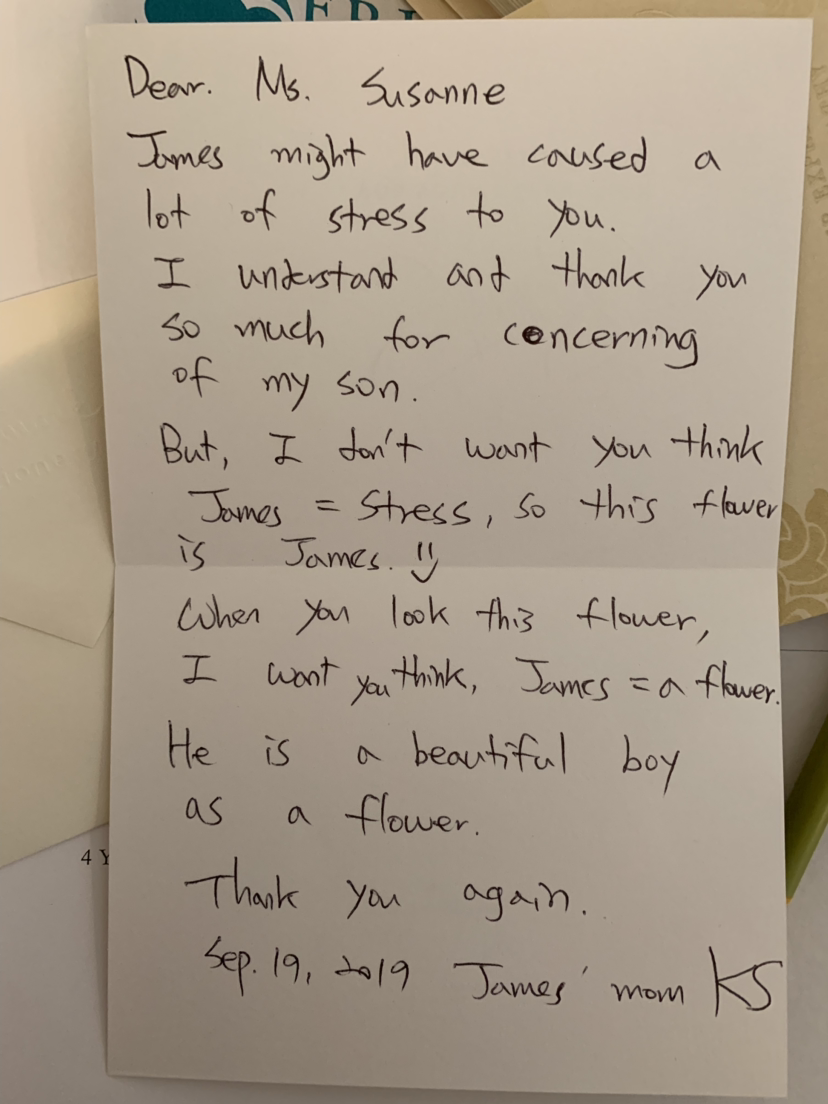 Dear. Ms. Susanne
James might have caused a
lot of stress to you.
I understand and thank you
so much for concerning
of my son.
But, I don't want you think
James = Stress, so this flower
is James.
When you look this flower,
I want you think, James = a flower.
He is a beautiful boy
as a flower.
Thank you again.
Sep. 19, 2019 James' mom KS
4 Y